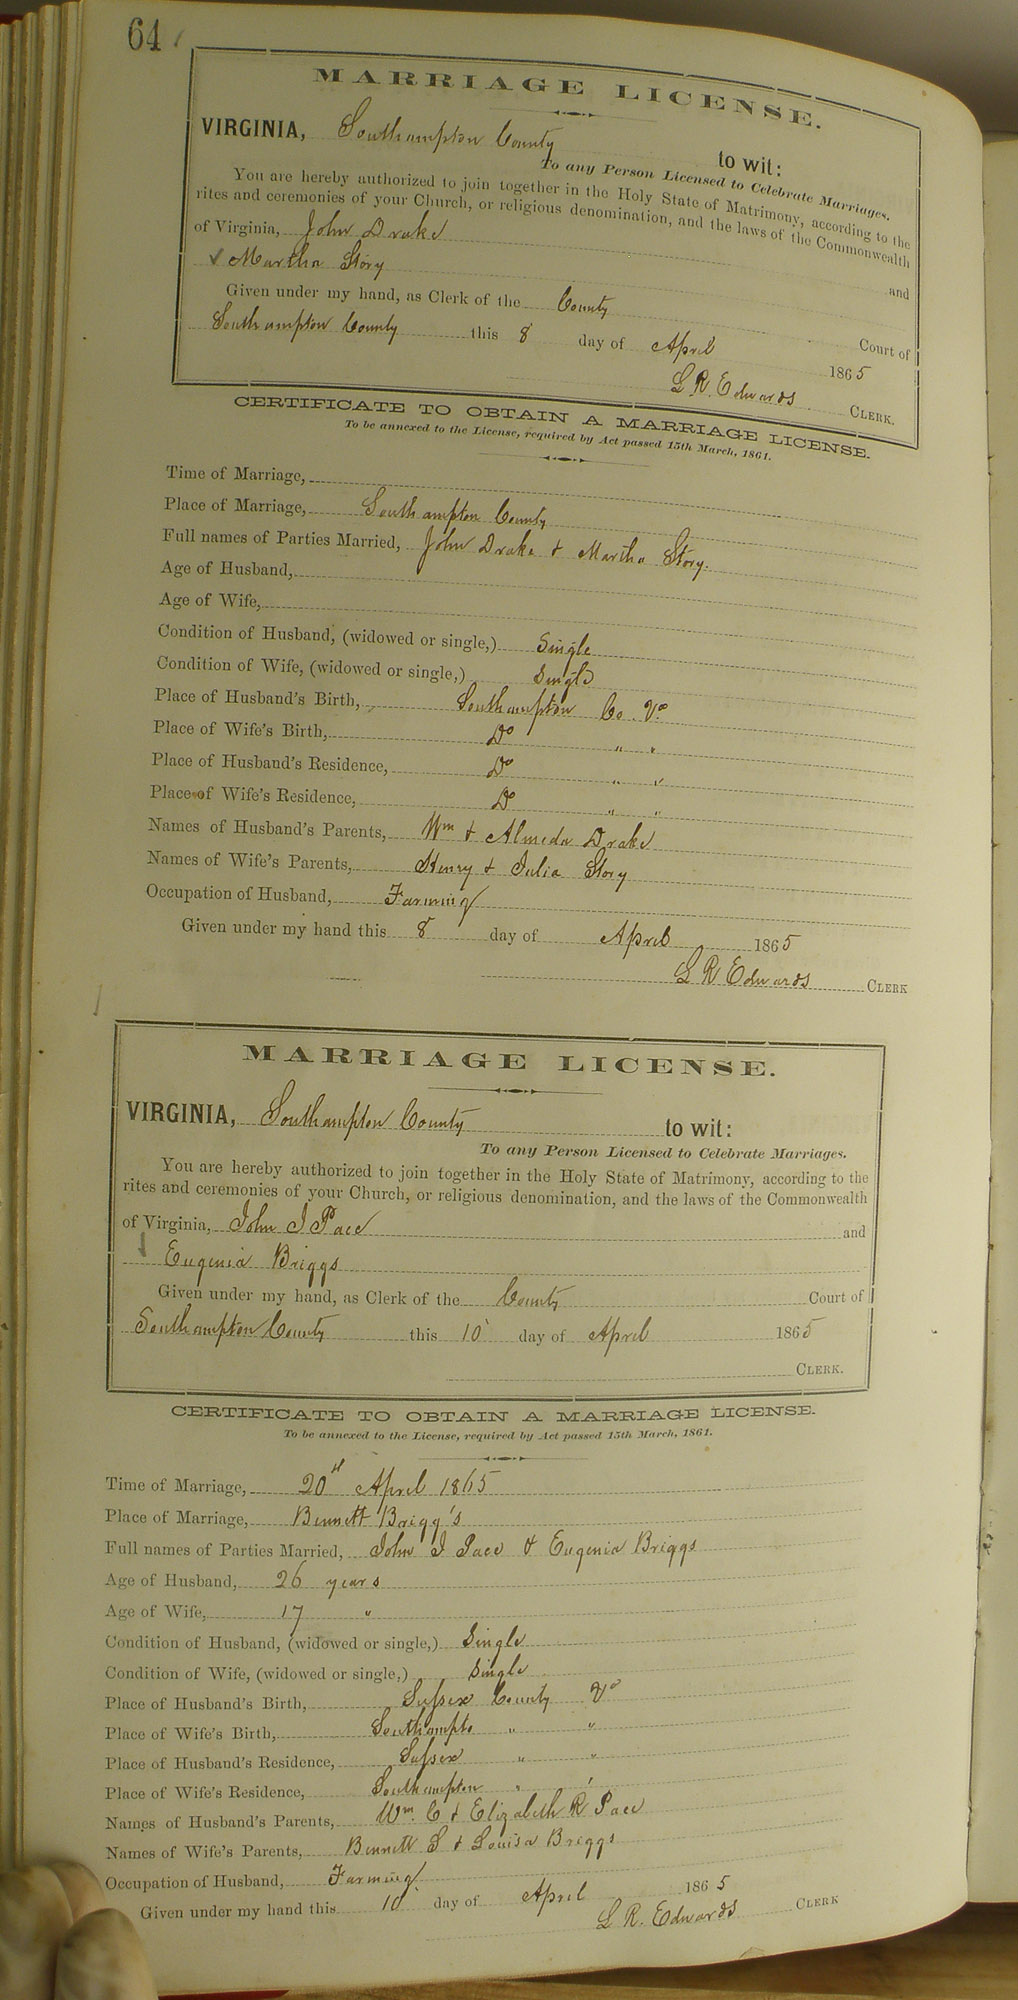 64
MARRIAGE LICENSE.
VIRGINIA, Southampton County to wit:
To any Person Licensed to Celebrate Marriages.
You are hereby authorized to join together in the Holy State of Matrimony, according to the
rites and ceremonies of your Church, or religious denomination, and the laws of the Commonwealth
of Virginia, John Drake and
Martha Story
Given under my hand, as Clerk of the County Court of
Southampton County this 8 day of April 1865
L R. Edwards CLERK.
CERTIFICATE TO OBTAIN A MARRIAGE LICENSE.
To be annexed to the License, required by Act passed 15th March, 1861.
Time of Marriage,
Place of Marriage, Southampton County
Full names of Parties Married, John Drake & Martha Story.
Age of Husband,
Age of Wife,
Condition of Husband, (widowed or single,) Single
Condition of Wife, (widowed or single,) Single
Place of Husband's Birth, Southampton Co. Va
Place of Wife's Birth, Do " "
Place of Husband's Residence, Do " "
Place of Wife's Residence, Do " "
Names of Husband's Parents, Wm & Almeda Drake
Names of Wife's Parents, Henry & Julia Story
Occupation of Husband, Farming
Given under my hand this 8 day of April 1865
L R Edwards CLERK
MARRIAGE LICENSE.
VIRGINIA, Southampton County to wit:
To any Person Licensed to Celebrate Marriages.
You are hereby authorized to join together in the Holy State of Matrimony, according to the
rites and ceremonies of your Church, or religious denomination, and the laws of the Commonwealth
of Virginia, John J Pace and
Eugenia Briggs
Given under my hand, as Clerk of the County Court of
Southampton County this 10 day of April 1865
CLERK.
CERTIFICATE TO OBTAIN A MARRIAGE LICENSE.
To be annexed to the License, required by Act passed 15th March, 1861.
Time of Marriage, 20th April 1865
Place of Marriage, Bennett Brigg's
Full names of Parties Married, John J Pace & Eugenia Briggs
Age of Husband, 26 years
Age of Wife, 17 "
Condition of Husband, (widowed or single,) Single
Condition of Wife, (widowed or single,) Single
Place of Husband's Birth, Sussex County Va
Place of Wife's Birth, Southampto " "
Place of Husband's Residence, Sussex " "
Place of Wife's Residence, Southampton " "
Names of Husband's Parents, Wm. C & Elizabeth R Pace
Names of Wife's Parents, Bennett S & Louisa Briggs
Occupation of Husband, Farming
Given under my hand this 10 day of April 1865
L R. Edwards CLERK